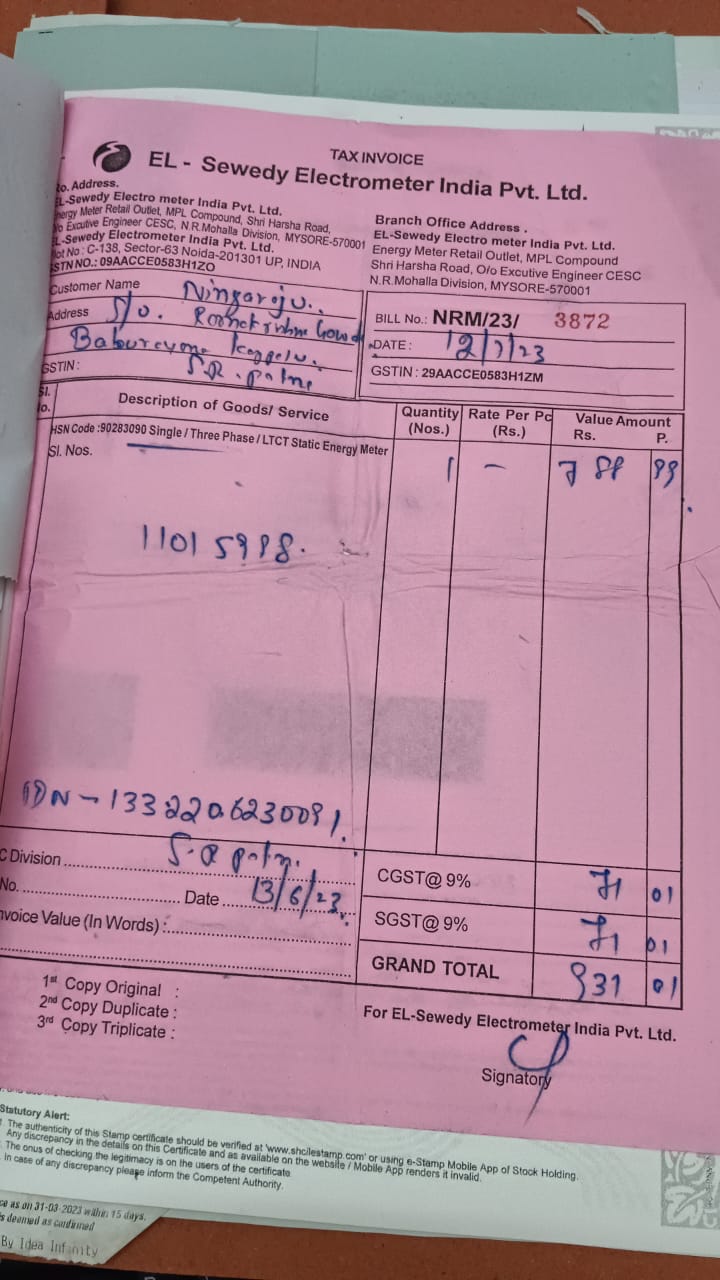 TAX INVOICE
EL - Sewedy Electrometer India Pvt. Ltd.
Ro. Address.
EL-Sewedy Electro meter India Pvt. Ltd.
Energy Meter Retail Outlet, MPL Compound, Shri Harsha Road,
O/o Excutive Engineer CESC, N.R.Mohalla Division, MYSORE-570001
EL-Sewedy Electrometer India Pvt. Ltd.
Plot No : C-138, Sector-63 Noida-201301 UP, INDIA
GSTN NO.: 09AACCE0583H1ZO
Branch Office Address .
EL-Sewedy Electro meter India Pvt. Ltd.
Energy Meter Retail Outlet, MPL Compound
Shri Harsha Road, O/o Excutive Engineer CESC
N.R.Mohalla Division, MYSORE-570001
Customer Name Ningaraju.
Address S/o.
GSTIN : S.R. patna
BILL No.: NRM/23/ 3872
DATE : 12/7/23
GSTIN : 29AACCE0583H1ZM
Sl. No. Description of Goods/ Service Quantity (Nos.) Rate Per Pc (Rs.) Value Amount Rs. P.
HSN Code :90283090 Single / Three Phase / LTCT Static Energy Meter
Sl. Nos. 1 – 788 99
11015998.
1332206230091.
C Division S.R patna.
No. Date 13/6/23
Invoice Value (In Words) :
CGST@ 9% 71 01
SGST@ 9% 71 01
GRAND TOTAL 931 01
1st Copy Original :
2nd Copy Duplicate :
3rd Copy Triplicate :
For EL-Sewedy Electrometer India Pvt. Ltd.
Signatory
Statutory Alert:
1. The authenticity of this Stamp certificate should be verified at 'www.shcilestamp.com' or using e-Stamp Mobile App of Stock Holding.
Any discrepancy in the details on this Certificate and as available on the website / Mobile App renders it invalid.
The onus of checking the legitimacy is on the users of the certificate
In case of any discrepancy please inform the Competent Authority.
as on 31-03-2023 within 15 days.
is deemed as confirmed
By Idea Infinity